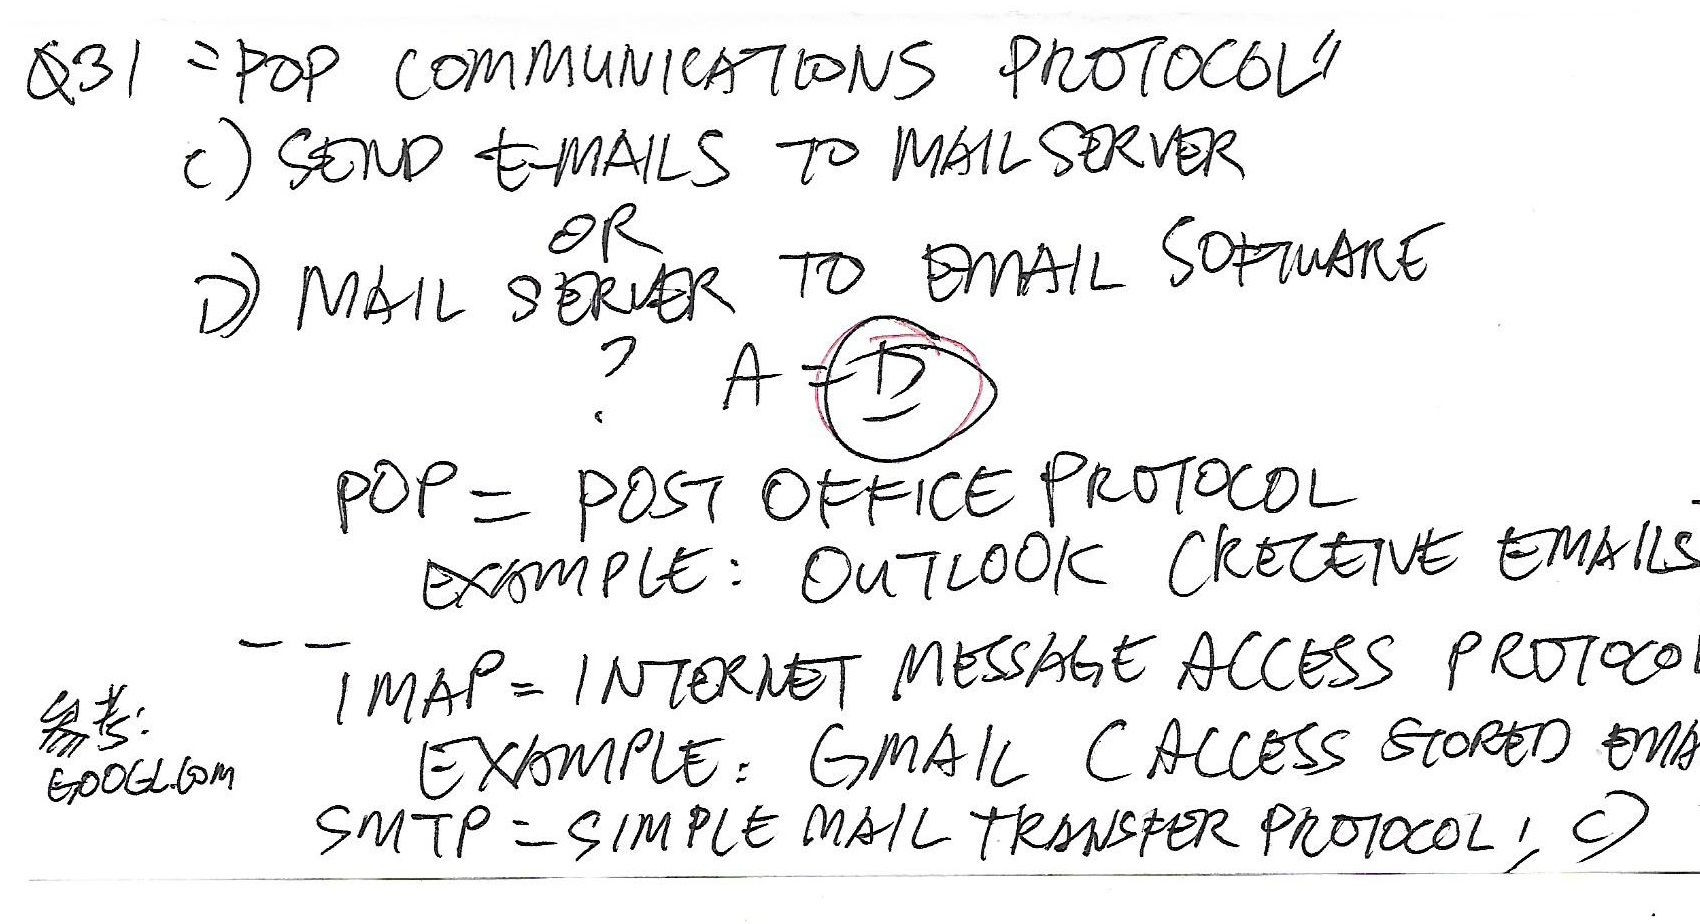 Q31 = POP COMMUNICATIONS PROTOCOL"
C) SEND E-MAILS TO MAIL SERVER
OR
D) MAIL SERVER TO EMAIL SOFTWARE
?
A = D
POP = POST OFFICE PROTOCOL
EXAMPLE: OUTLOOK (RECEIVE EMAILS
-- IMAP = INTERNET MESSAGE ACCESS PROTOCOL
EXAMPLE: GMAIL (ACCESS STORED EMA
参考:
GOOGL.COM
SMTP = SIMPLE MAIL TRANSFER PROTOCOL! C)